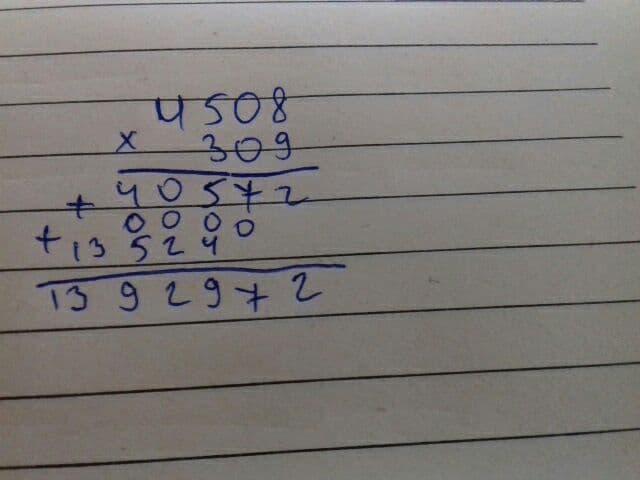 4508
x 309
+ 40572
0000
+ 13524
1392972